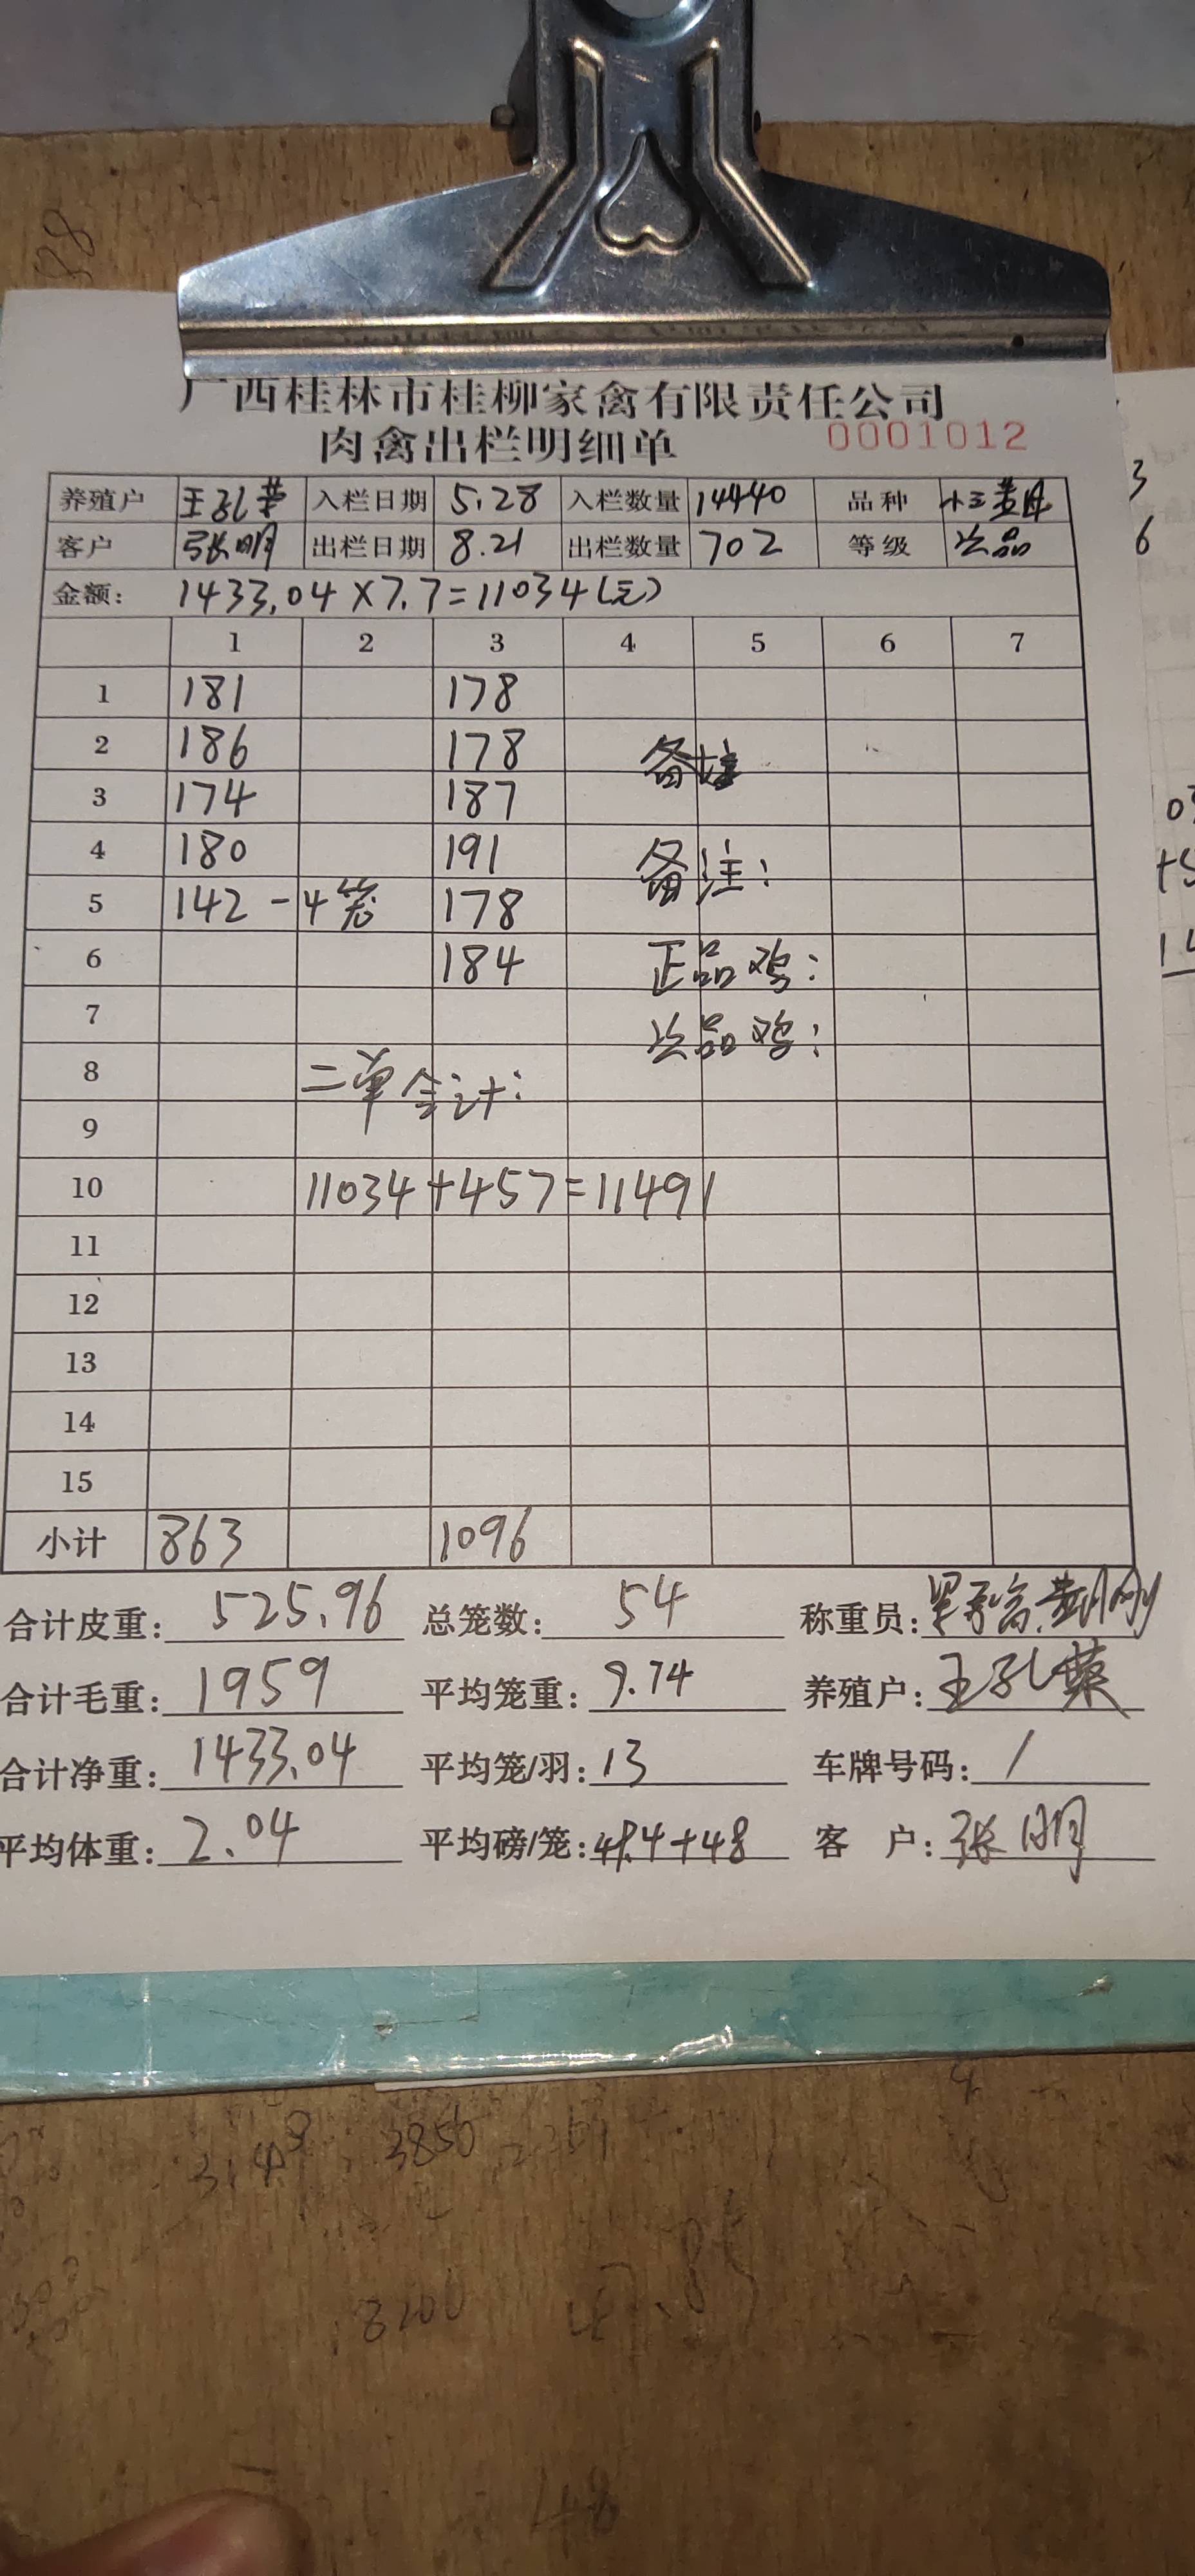 广西桂林市桂柳家禽有限责任公司
肉禽出栏明细单 0001012
养殖户 王孔荣 入栏日期 5.28 入栏数量 14440 品种
客户 张明 出栏日期 8.21 出栏数量 702 等级 次品
金额: 1433.04×7.7=11034(元)
1 2 3 4 5 6 7
1 181 178
2 186 178 备注
3 174 187
4 180 191 备注:
5 142 -4笼 178
6 184 正品鸡:
7 次品鸡:
8 二单合计:
9
10 11034+457=11491
11
12
13
14
15
小计 863 1096
合计皮重: 525.96 总笼数: 54 称重员:
合计毛重: 1959 平均笼重: 9.74 养殖户: 王孔荣
合计净重: 1433.04 平均笼/羽: 13 车牌号码: /
平均体重: 2.04 平均磅/笼: +48 客 户: 张明
88
3
6
3850
8200